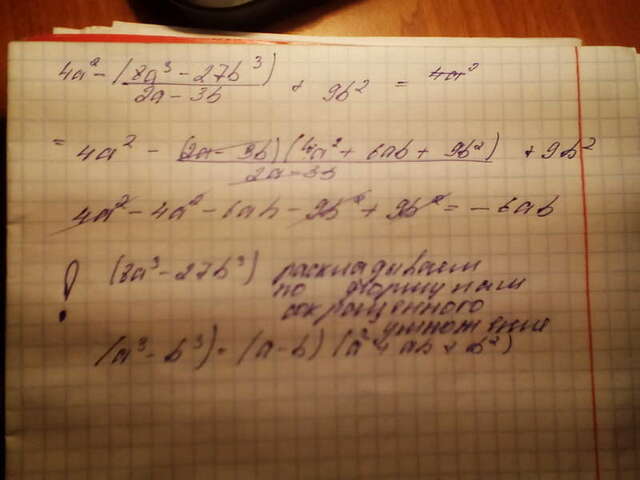 4a² - (8a³ - 27b³) / 2a - 3b + 9b² = 4a²
= 4a² - (2a - 3b)(4a² + 6ab + 9b²) / 2a - 3b + 9b²
4a² - 4a² - 6ab - 9b² + 9b² = -6ab
! (8a³ - 27b³) раскладываем
по формулам
сокращенного
умножения
(a³ - b³) = (a - b)(a² + ab + b²)